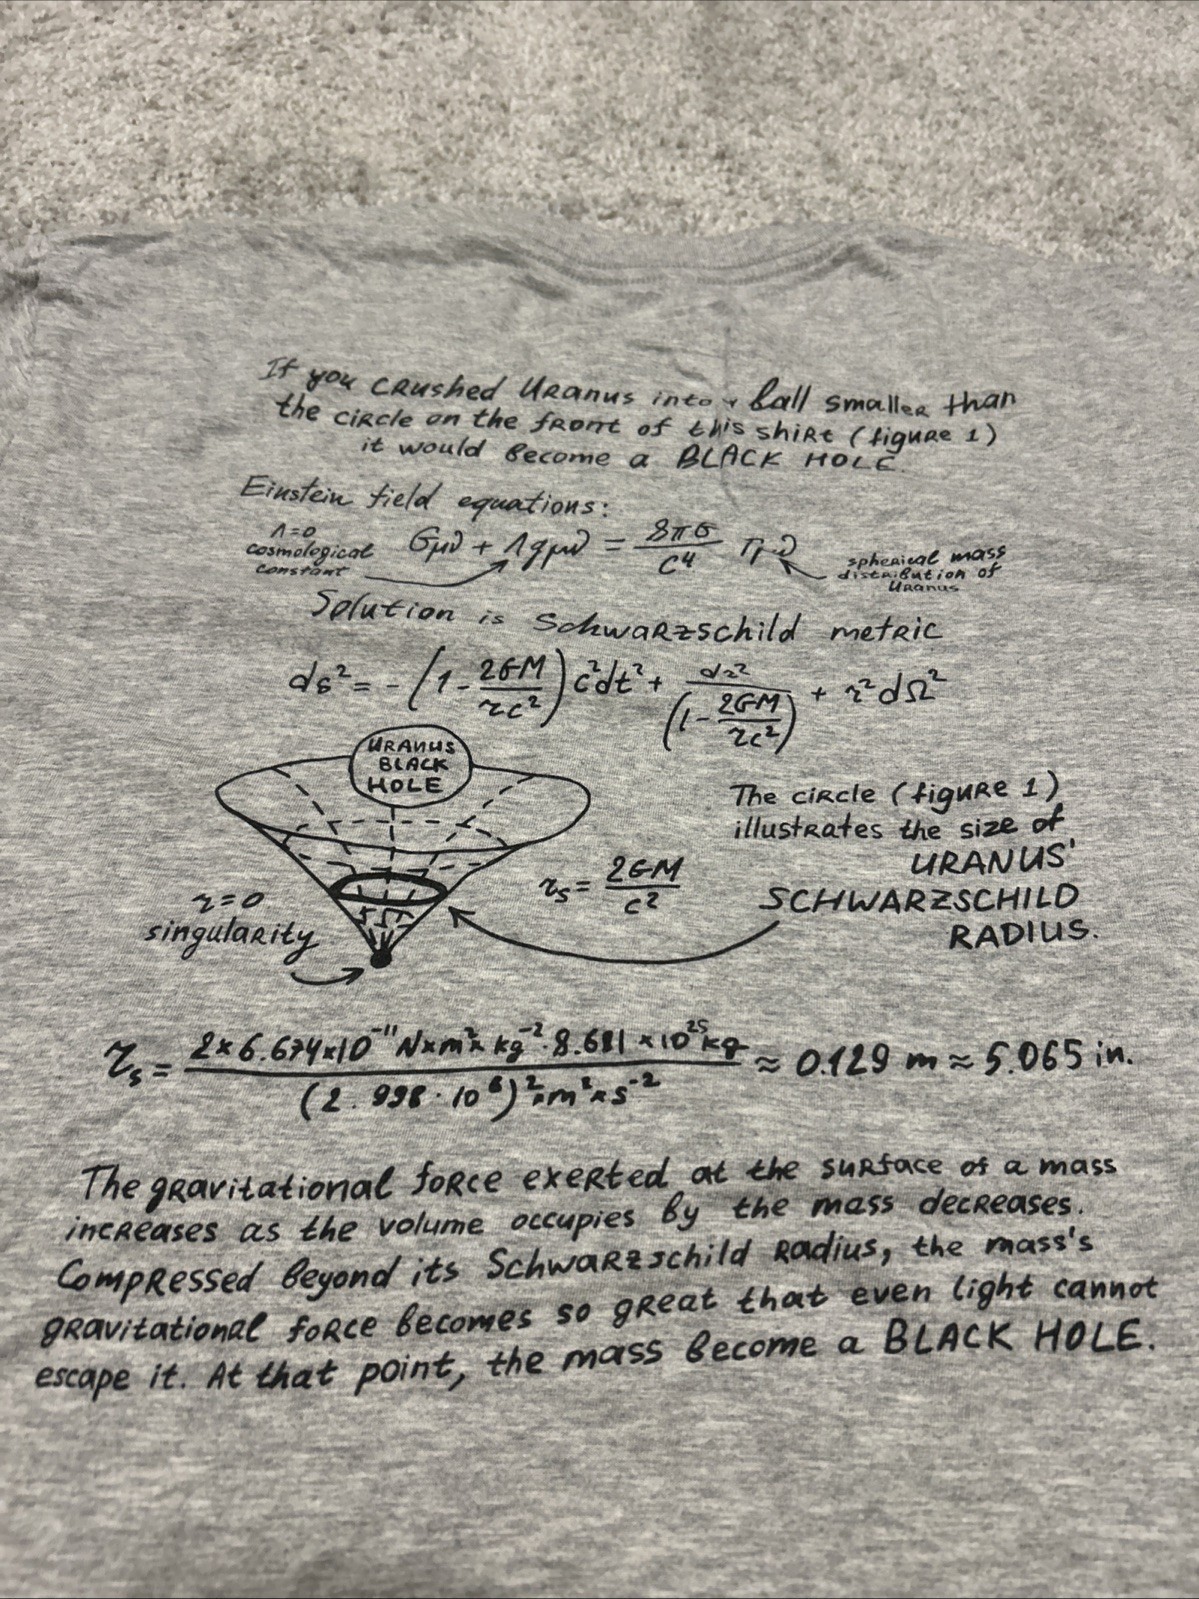 If you crushed Uranus into a ball smaller than
the circle on the front of this shirt (figure 1)
it would become a BLACK HOLE.
Einstein field equations:
Λ=0
cosmological
constant
Gμν + Λgμν = 8πG/c⁴ Tμν
spherical mass
distribution of
Uranus
Solution is Schwarzschild metric
ds² = -(1 - 2GM/rc²) c²dt² + dr²/(1 - 2GM/rc²) + r²dΩ²
URANUS
BLACK
HOLE
The circle (figure 1)
illustrates the size of
URANUS'
SCHWARZSCHILD
RADIUS.
rs = 2GM/c²
r=0
singularity
rs = 2×6.674×10⁻¹¹ N×m²× kg⁻²·8.681×10²⁵kg / (2.998·10⁸)²×m²×s⁻² ≈ 0.129 m ≈ 5.065 in.
The gravitational force exerted at the surface of a mass
increases as the volume occupies by the mass decreases.
Compressed beyond its Schwarzschild Radius, the mass's
gravitational force becomes so great that even light cannot
escape it. At that point, the mass become a BLACK HOLE.